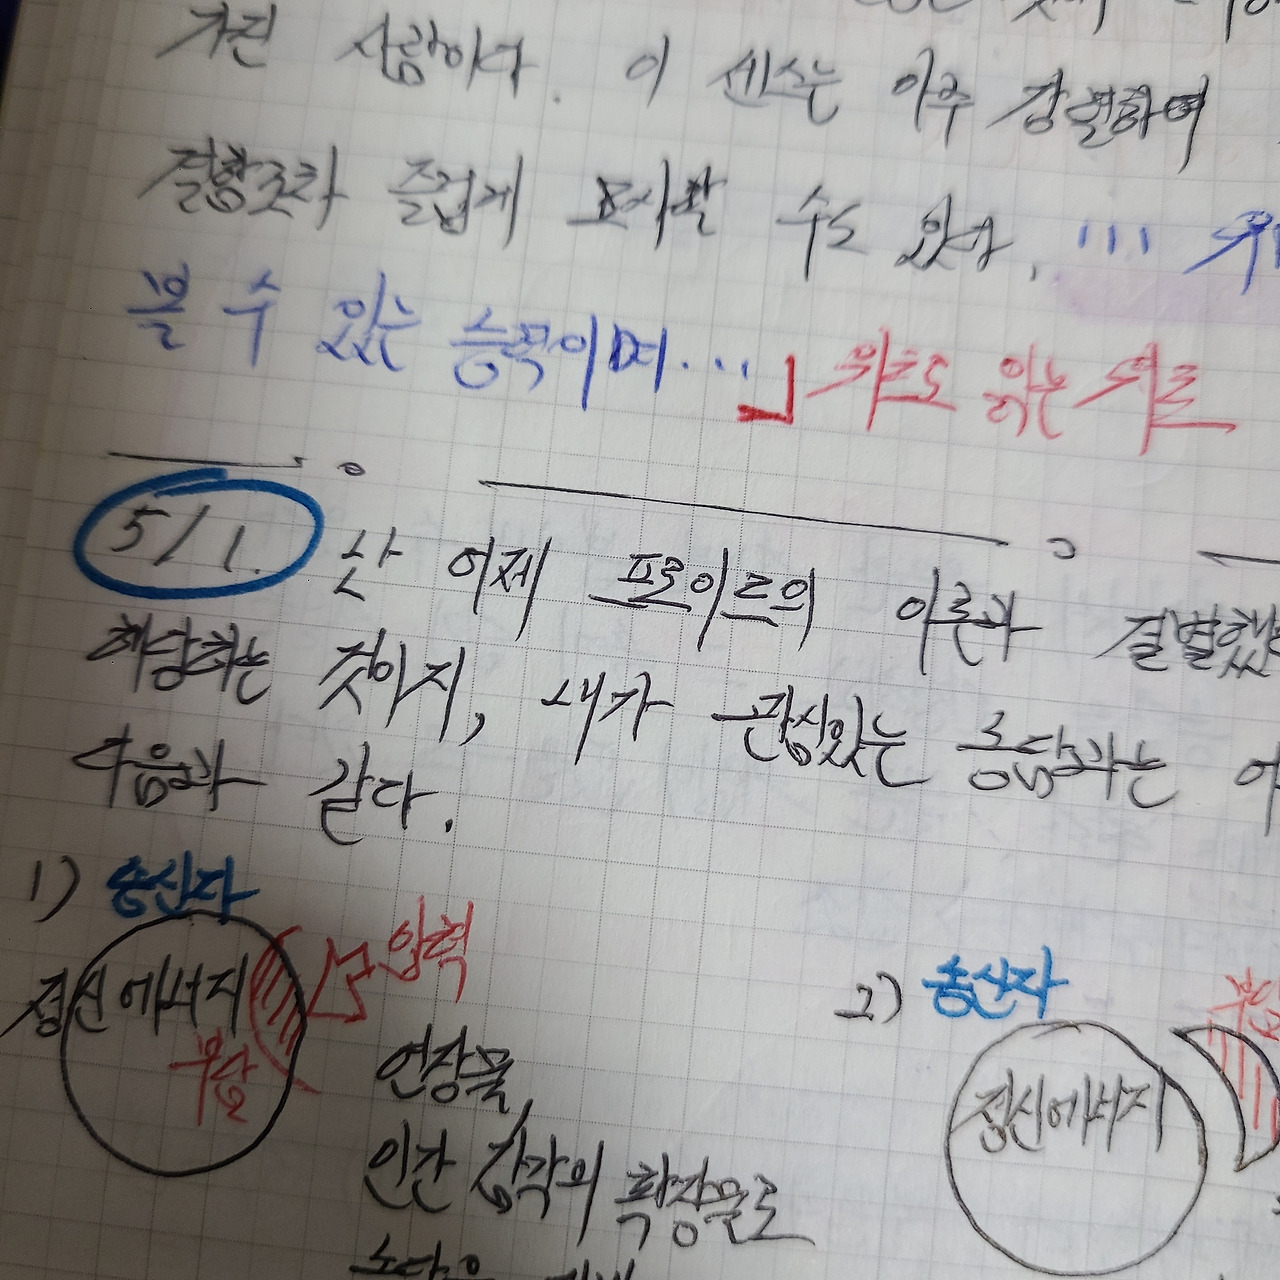 가진 사람이다. 이 센스는 아주 강렬하여
결함조차 즐겁게 묘사할 수도 있다. ...
볼 수 있는 능력이며...」 위트도 있는 위트
5/1. 난 어제 프로이트의 이론과 결별했
해당하는 것이지, 내가 관심있는 농담과는
다음과 같다.
1) 송신자
압력
정신에너지
부담
연장물,
인간 감각의 확장물로
2) 송신자
정신에너지